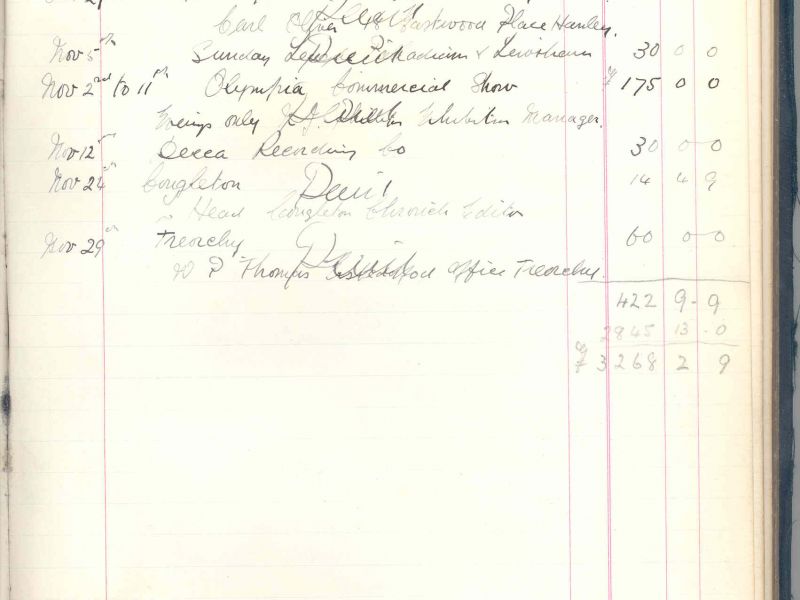 Carl Oliver 48 Eastwood Place Hanley.
Nov 5th Sunday Palladium & Lewisham 30 0 0
Nov 2nd to 11th Olympia Commercial Show £ 175 0 0
only Exhibition Manager.
Nov 12th Decca Recording Co 30 0 0
Nov 24th Congleton Paid 14 4 9
Head Congleton Chronicle Editor
Nov 29th Treorchy Paid 60 0 0
W P Thomas Office Treorchy.
422 9 - 9
2845 13 - 0
£ 3268 2 9